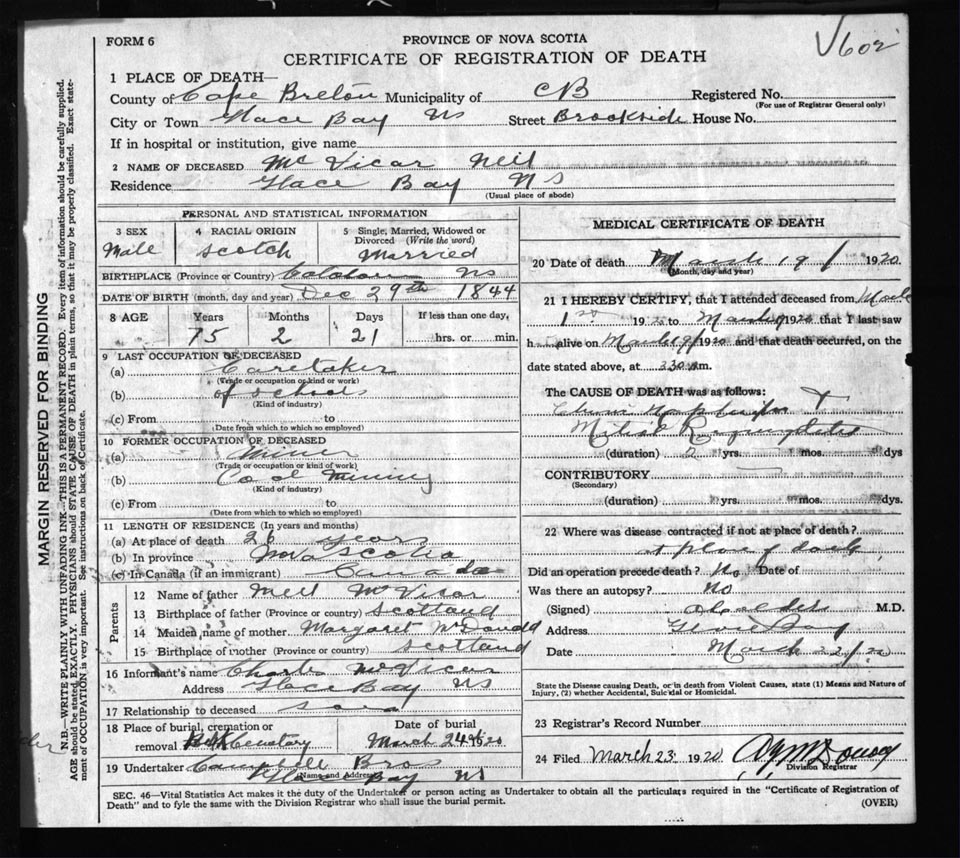 FORM 6
PROVINCE OF NOVA SCOTIA
V602
CERTIFICATE OF REGISTRATION OF DEATH
1 PLACE OF DEATH—
County of Cape Breton Municipality of CB Registered No.
(For use of Registrar General only)
City or Town Glace Bay NS Street Brookside House No.
If in hospital or institution, give name
2 NAME OF DECEASED Mc Vicar Neil
Residence Glace Bay NS
(Usual place of abode)
PERSONAL AND STATISTICAL INFORMATION
3 SEX Male
4 RACIAL ORIGIN Scotch
5 Single, Married, Widowed or Divorced (Write the word) Married
BIRTHPLACE (Province or Country) NS
DATE OF BIRTH (month, day and year) Dec 29th 1844
8 AGE Years Months Days If less than one day,
75 2 21 hrs. or min.
9 LAST OCCUPATION OF DECEASED
(a) Caretaker
(Trade or occupation or kind or work)
(b) of schools
(Kind of industry)
(c) From to
(Date from which to which so employed)
10 FORMER OCCUPATION OF DECEASED
(a) Miner
(Trade or occupation or kind of work)
(b) Coal Mining
(Kind of industry)
(c) From to
(Date from which to which so employed)
11 LENGTH OF RESIDENCE (In years and months)
(a) At place of death 26 years
(b) In province Nova Scotia
(c) In Canada (if an immigrant) Canada
Parents
12 Name of father Neil McVicar
13 Birthplace of father (Province or country) Scotland
14 Maiden name of mother Margaret McDonald
15 Birthplace of mother (Province or country) Scotland
16 Informant's name Charles McVicar
Address Glace Bay NS
17 Relationship to deceased son
18 Place of burial, cremation or removal Cemetery
Date of burial March 24th 1920
19 Undertaker Campbell Bros
(Name and Address) Glace Bay NS
MEDICAL CERTIFICATE OF DEATH
20 Date of death March 19/ 1920
(Month, day and year)
21 I HEREBY CERTIFY, that I attended deceased from March
1st 1920 to March 19/ 1920 that I last saw
h alive on March 19/ 1920 and that death occurred, on the
date stated above, at 330 m.
The CAUSE OF DEATH was as follows:
Mitral
(duration) 2 yrs. mos. dys
CONTRIBUTORY
(Secondary)
(duration) yrs. mos. dys.
22 Where was disease contracted if not at place of death?
at place of death
Did an operation precede death? No Date of
Was there an autopsy? No
(Signed) M.D.
Address Glace Bay
Date March 22/20
State the Disease causing Death, or in death from Violent Causes, state (1) Means and Nature of
Injury, (2) whether Accidental, Suicidal or Homicidal.
23 Registrar's Record Number
24 Filed March 23 1920
Division Registrar
SEC. 46—Vital Statistics Act makes it the duty of the Undertaker or person acting as Undertaker to obtain all the particulars required in the "Certificate of Registration of
Death" and to fyle the same with the Division Registrar who shall issue the burial permit.
(OVER)
MARGIN RESERVED FOR BINDING
N.B.—WRITE PLAINLY WITH UNFADING INK—THIS IS A PERMANENT RECORD. Every item of information should be carefully supplied.
AGE should be stated EXACTLY. PHYSICIANS should STATE CAUSE OF DEATH in plain terms, so that it may be properly classified. Exact statement
of OCCUPATION is very important. See instructions on back of Certificate.